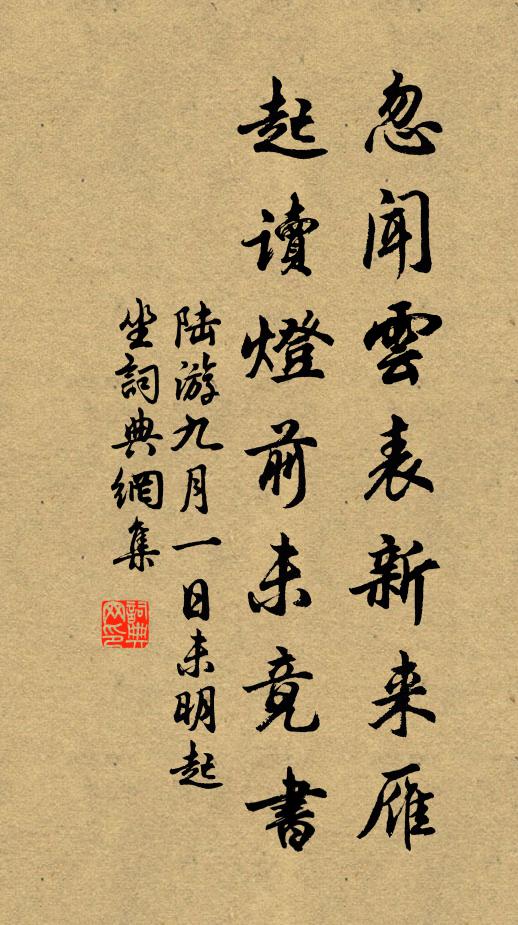 忽聞雲表新来雁
起讀燈前未竟書
陆游九月一日未明起
坐詞典網集
詞典
网印